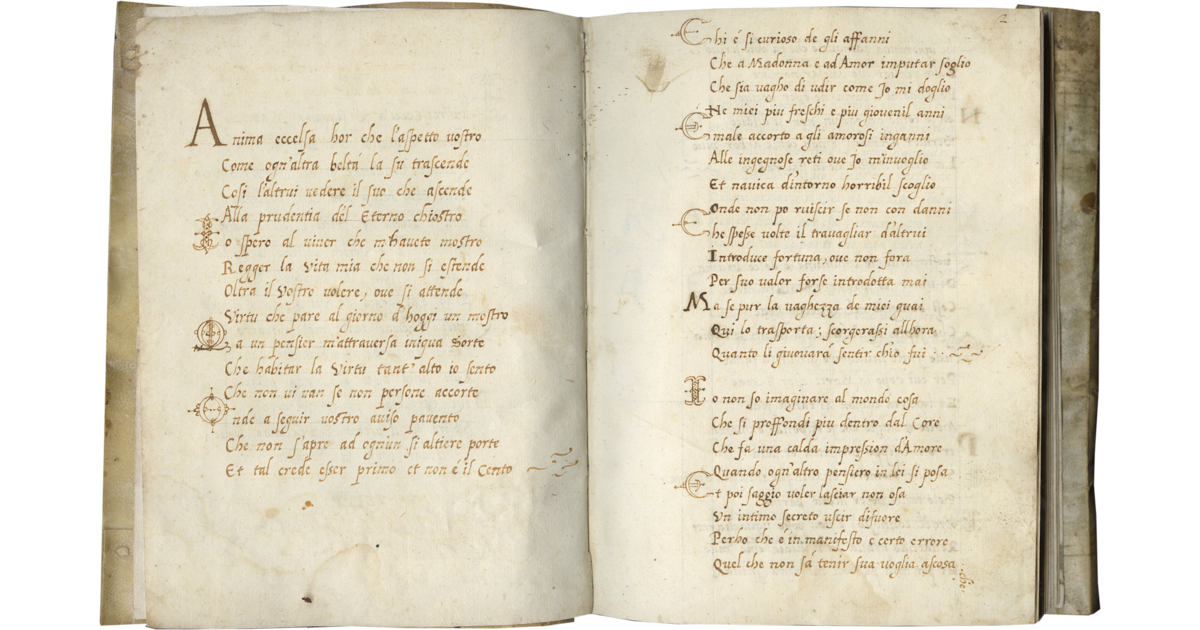 Anima eccelsa hor che l'aspetto vostro
Come ogn'altra beltà la su trascende
Cosi l'altrui vedere il suo che ascende
Alla prudentia del Eterno chiostro
Io spero al viver che m'havete mostro
Regger la vita mia che non si estende
Oltra il vostro volere, ove si attende
Virtu che pare al giorno d'hoggi un mostro
Ma un pensier m'attraversa iniqua sorte
Che habitar la Virtu tant' alto io sento
Che non vi van se non persone accorte
Onde a seguir vostro aviso pavento
Che non s'apre ad ogn'un si altiere porte
Et tal crede esser primo et non é il Cento
2
Chi é si curioso de gli affanni
Che a Madonna e ad Amor imputar soglio
Che sia vagho di udir come Jo mi doglio
Ne miei piu freschi e piu giovenil anni
E male accorto a gli amorosi inganni
Alle ingegnose reti ove Jo m'invoglio
Et navica d'intorno horribil scoglio
Onde non po riuscir se non con danni
Che spesse volte il travagliar d'altrui
Introduce fortuna, ove non fora
Per suo valor forse introdotta mai
Ma se pur la vaghezza de miei guai
Qui lo trasporta; scorgerassi allhora
Quanto li giovará sentir ch'io fui
Io non so imaginare al mondo cosa
Che si proffondi piu dentro dal Core
Che fa una calda impression d'Amore
Quando ogn'altro pensiero in lei si posa
Et poi saggio voler lasciar non osa
Un intimo secreto uscir difuore
Perho che é in manifesto e certo errore
Quel che non sá tenir sua voglia ascosa
che